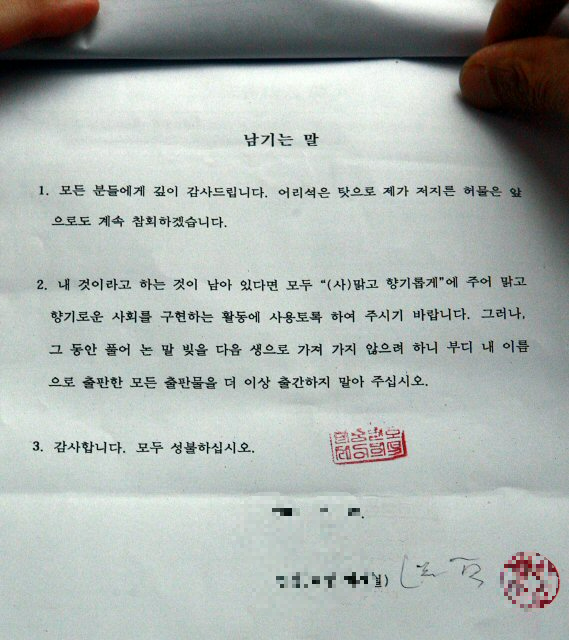 남기는 말
1. 모든 분들에게 깊이 감사드립니다. 어리석은 탓으로 제가 저지른 허물은 앞
으로도 계속 참회하겠습니다.
2. 내 것이라고 하는 것이 남아 있다면 모두 “(사)맑고 향기롭게”에 주어 맑고
향기로운 사회를 구현하는 활동에 사용토록 하여 주시기 바랍니다. 그러나,
그 동안 풀어 논 말 빚을 다음 생으로 가져 가지 않으려 하니 부디 내 이름
으로 출판한 모든 출판물을 더 이상 출간하지 말아 주십시오.
3. 감사합니다. 모두 성불하십시오.